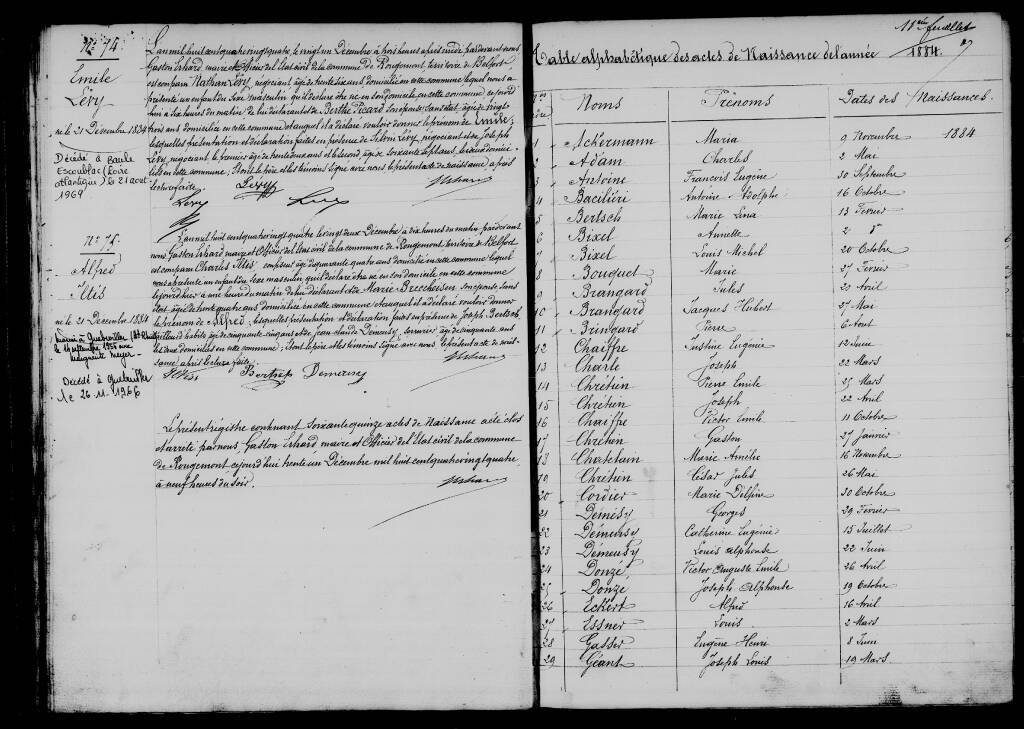 N° 74.
Emile
Lévy
né le 21 Décembre 1884
Décédé à Baule
Escoublac (Loire
atlantique) le 21 août
1969
L'an mil huit cent quatre vingt quatre, le vingt un Décembre à trois heures après midi, par devant nous
Gaston Erhard, maire et Officier de l'Etat civil de la commune de Rougemont territoire de Belfort
est comparu Nathan Lévy, négociant âgé de trente six ans domicilié en cette commune lequel nous a
présenté un enfant du sexe masculin qu'il déclare être né en son domicile en cette commune
à dix heures du matin de lui déclarant et de Berthe Picard son épouse sans état, âgée de vingt
trois ans domiciliée en cette commune et auquel il a déclaré vouloir donner le prénom de Emile;
lesquelles présentation et déclaration faites en présence de Lévy, négociant et de Joseph
Lévy, négociant le premier âgé de trente deux ans et le second, âgé de soixante ans, tous deux domici-
liés en cette commune; et ont le père et les témoins signé avec nous le présent acte de naissance, après
lecture faite.
Lévy
N° 75.
Alfred
Iltis
né le 21 Décembre 1884
Marié à Guebwiller
Marguerite Meyer
Décédé à Guebwiller
le 26.11.1966
L'an mil huit cent quatre vingt quatre le vingt deux Décembre à dix heures du matin par devant
nous, Gaston Erhard maire et Officier de l'Etat civil de la commune de Rougemont territoire de Belfort
est comparu Charles Iltis, âgé de quarante quatre ans domicilié en cette commune lequel
nous a présenté un enfant du sexe masculin qu'il déclare être né en son domicile en cette commune
à une heure du matin de lui déclarant et de Marie son épouse sans
état, âgée de trente quatre ans domiciliée en cette commune et auquel il a déclaré vouloir donner
le prénom de Alfred; lesquelles présentation et déclaration faites en présence de Joseph Bertsch,
tailleur d'habits âgé de cinquante cinq ans et de Jean Claude Demeusy, serrurier âgé de cinquante
ans domiciliés en cette commune; et ont le père et les témoins signé avec nous le présent acte de nais-
sance après lecture faite.
Iltis Bertsch Demeusy
Le présent registre contenant soixante quinze actes de Naissance a été clos
et arrêté par nous, Gaston Erhard, maire et Officier de l'Etat civil de la commune
de Rougemont cejourd'hui trente un Décembre mil huit cent quatre vingt quatre,
à neuf heures du soir.
11me feuillet
Table alphabétique des actes de Naissance de l'année 1884.
Noms Prénoms Dates des Naissances.
1 Ackermann Maria 9 Novembre 1884
2 Adam Charles 2 Mai
3 Antoine François Eugène 30 Septembre
4 Bacilièri Antoine Adolphe 16 Octobre
5 Bertsch Marie Lina 13 Février
6 Bixel Annette 2 do
7 Bixel Louis Michel 20 Octobre
8 Bouquet Marie 27 Février
9 Brangard Jules 20 Avril
10 Brangard Jacques Hubert 27 Mai
11 Bringard Pierre 6 Août
12 Chaiffre Justine Eugénie 12 Juin
13 Charle Joseph 22 Mars
14 Chrétien Pierre Emile 25 Mars
15 Chrétien Joseph 22 Avril
16 Chaiffre Victor Emile 11 Octobre
17 Chrétien Gaston 27 Janvier
18 Chretien Marie Amélie 16 Novembre
19 Chrétien César Jules 26 Mai
20 Cordier Marie Delfine 30 Octobre
21 Démésy Georges 29 Février
22 Démeusy Catherine Eugénie 15 Juillet
23 Démeusy Louis Alphonse 22 Juin
24 Donzé Victor Auguste Emile 26 Avril
25 Donzé Joseph Alphonse 19 Octobre
26 Eckert Alfred 16 Avril
27 Essner Louis 2 Mars
28 Gasser Eugène Henri 8 Juin
29 Géant Joseph Louis 19 Mars